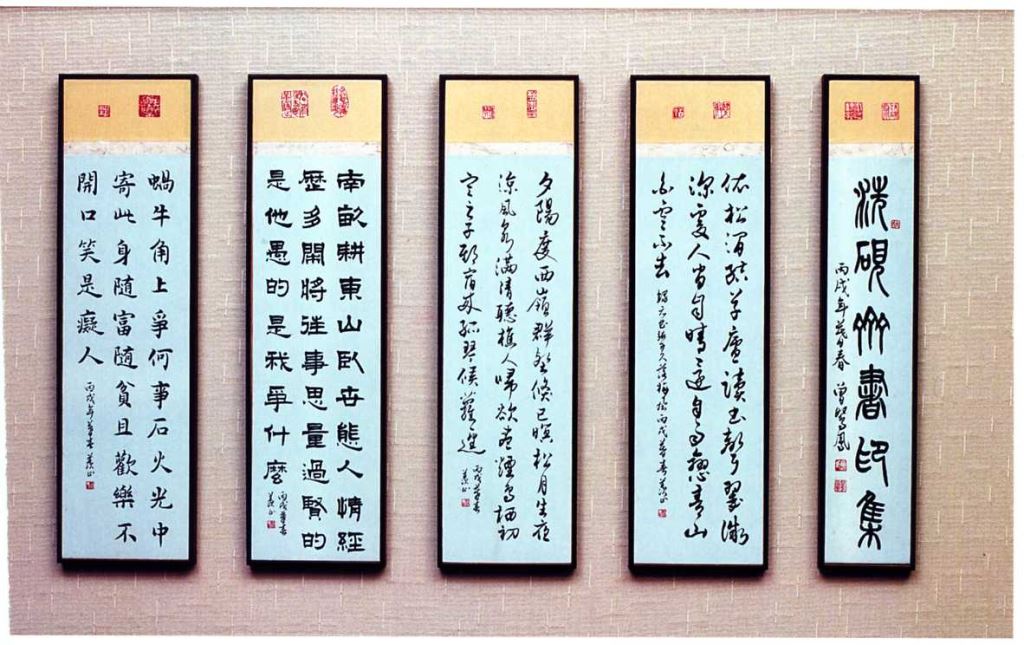 洗硯齋書印集
丙戌年暮春 曾鳳
依松澗結草廬讀書聲翠微
深處人間自晴還自雨戀青山
白雲不去
丙戌暮春
夕陽度西嶺群壑倏已暝松月生夜
涼風泉滿清聽樵人歸欲盡煙鳥栖初
定之子期宿來孤琴候蘿逕
丙戌暮春
南畝耕東山臥世態人情經
歷多閒將往事思量過賢的
是他愚的是我爭什麼
丙戌暮春
蝸牛角上爭何事石火光中
寄此身隨富隨貧且歡樂不
開口笑是癡人
丙戌年暮春